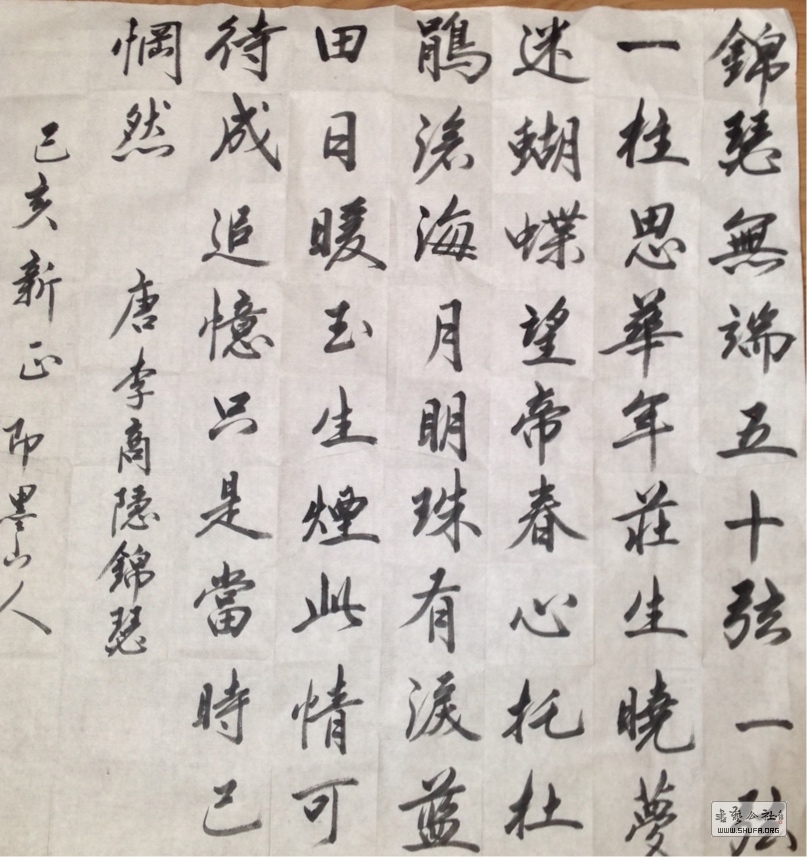 錦瑟無端五十弦一弦
一柱思華年莊生曉夢
迷蝴蝶望帝春心托杜
鵑滄海月明珠有淚藍
田日暖玉生煙此情可
待成追憶只是當時已
惘然 唐李商隱錦瑟
己亥新正即墨山人
书艺公社
WWW.SHUFA.ORG